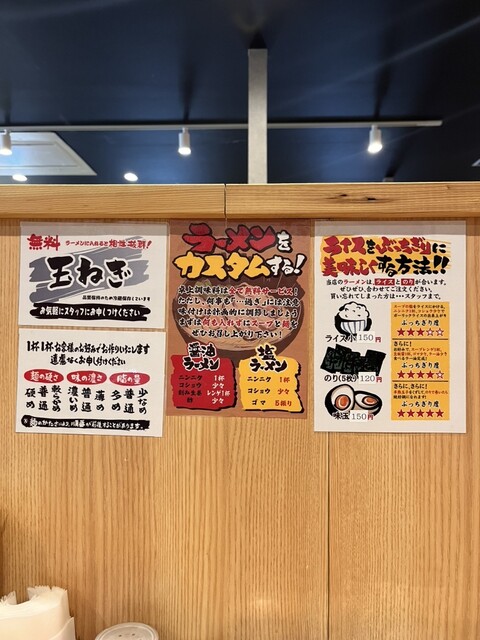 無料 ラーメンに入れると相性抜群!
玉ねぎ
お気軽にスタッフにお申しつけください
1杯1杯お客様のお好みでお作りいたします
遠慮なくお申し付けください
麺の硬さ 味の濃さ 脂の量
硬め 普通 柔らかめ
濃いめ 普通 薄め
多め 普通 少なめ
ラーメンを
カスタムする!
卓上調味料は全て無料サービス!
ただし、何事も…過ぎ」には注意
味付けは計画的に調節しましょう
まずは何も入れずにスープと麺を
ぜひお召し上がり下さい!
醤油ラーメン
ニンニク 1杯
コショウ 少々
刻み生姜 レンゲ1杯
酢 少々
塩ラーメン
ニンニク 1杯
コショウ 少々
ゴマ 5振り
ライスをぶっちぎりに
美味しくする方法!!
当店のラーメンは、ライスとの相性が有ります。
ぜひぜひ、合わせてご注文ください。
買い忘れてしまった方は・・・スタッフまで。
ライス 150円
のり(5枚) 120円
味玉 150円
ぶっちぎり度
★★★☆☆
さらに!
ぶっちぎり度
★★★★☆
さらに、さらに!
ぶっちぎり度
★★★★★